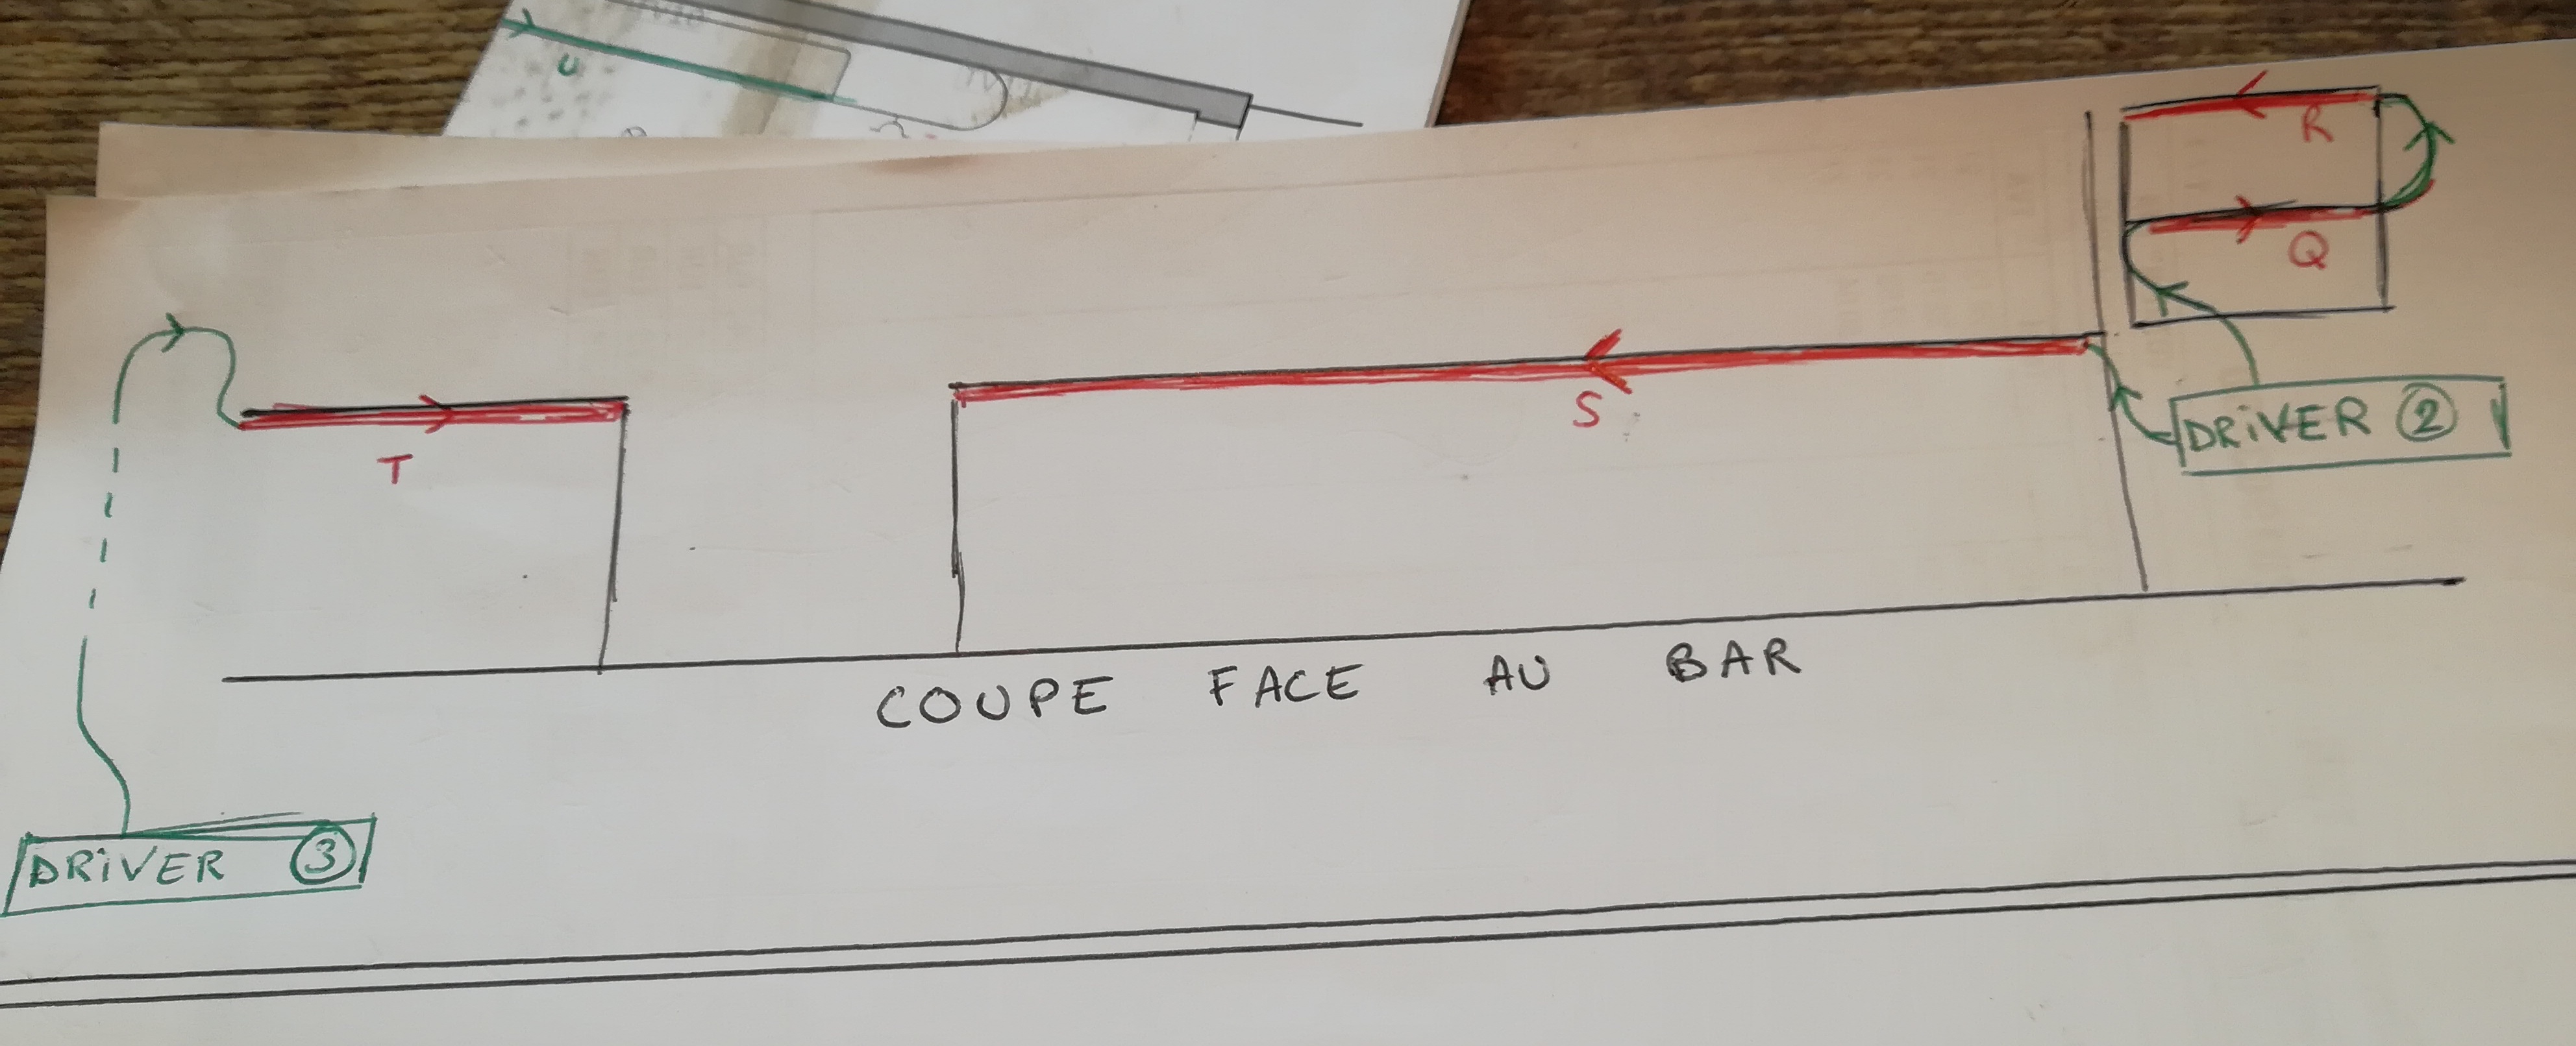 U
R
Q
S
T
DRiVER ②
COUPE FACE AU BAR
DRiVER ③